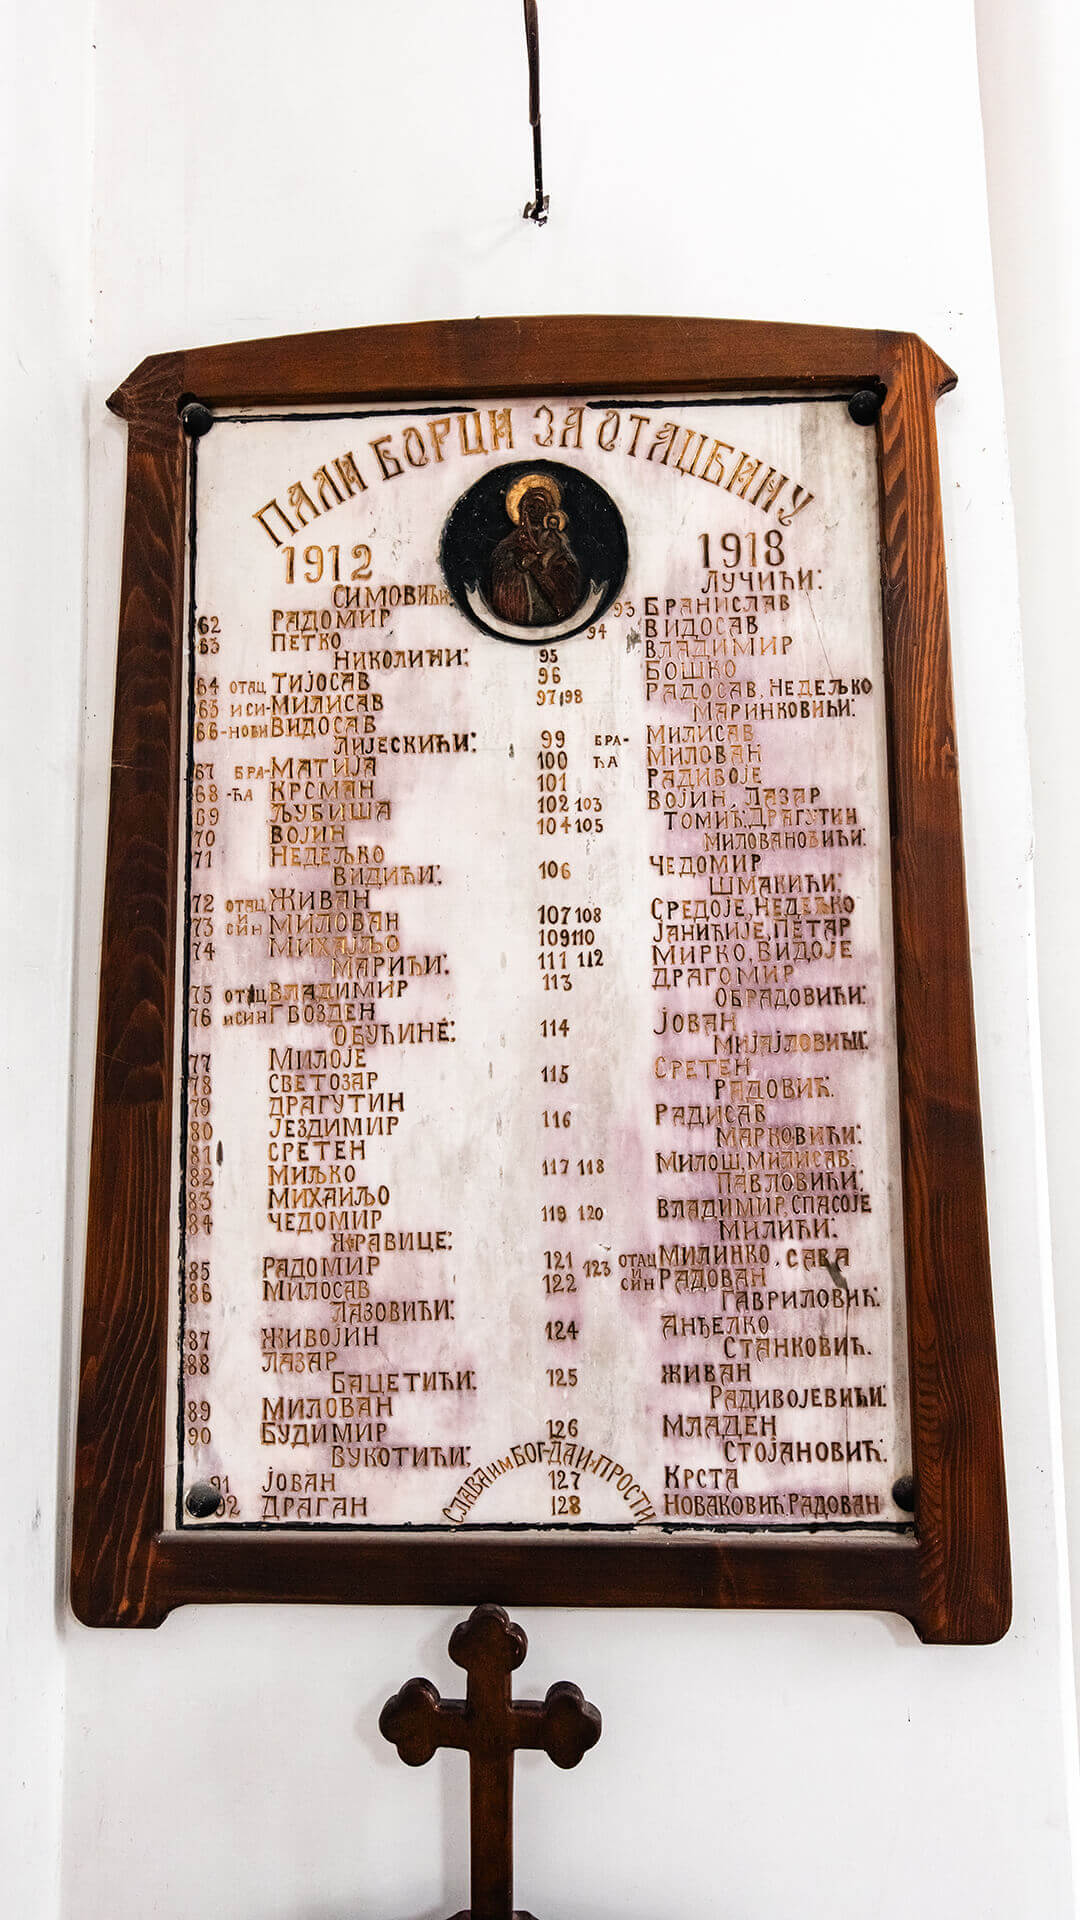 ПАЛИ БОРЦИ ЗА ОТАЏБИНУ
1912
СИМОВИЋИ:
62 РАДОМИР
63 ПЕТКО
НИКОЛИЋИ:
64 ОТАЦ ТИЈОСАВ
65 И СИ- МИЛИСАВ
66 -НОВИ ВИДОСАВ
ЛИЈЕСКИЋИ:
67 БРА- МАТИЈА
68 -ЋА КРСМАН
69 ЉУБИША
70 ВОЈИН
71 НЕДЕЉКО
ВИДИЋИ:
72 ОТАЦ ЖИВАН
73 И СИН МИЛОВАН
74 МИХАЈЉО
МАРИЋИ:
75 ОТАЦ ВЛАДИМИР
76 И СИН ГВОЗДЕН
ОБУЋИНЕ:
77 МИЛОЈЕ
78 СВЕТОЗАР
79 ДРАГУТИН
80 ЈЕЗДИМИР
81 СРЕТЕН
82 МИЉКО
83 МИХАИЉО
84 ЧЕДОМИР
ЖРАВИЦЕ:
85 РАДОМИР
86 МИЛОСАВ
ЛАЗОВИЋИ:
87 ЖИВОЈИН
88 ЛАЗАР
БАЦЕТИЋИ:
89 МИЛОВАН
90 БУДИМИР
ВУКОТИЋИ:
91 ЈОВАН
92 ДРАГАН
1918
ЛУЧИЋИ:
93 БРАНИСЛАВ
94 ВИДОСАВ
95 ВЛАДИМИР
96 БОШКО
97,98 РАДОСАВ, НЕДЕЉКО
МАРИНКОВИЋИ:
99 БРА- МИЛИСАВ
100 ЋА МИЛОВАН
101 РАДИВОЈЕ
102 103 ВОЈИН, ЛАЗАР
104 105 ТОМИЋ, ДРАГУТИН
МИЛОВАНОВИЋИ:
106 ЧЕДОМИР
ШМАКИЋИ:
107 108 СРЕДОЈЕ, НЕДЕЉКО
109 110 ЈАНИЋИЈЕ, ПЕТАР
111 112 МИРКО, ВИДОЈЕ
113 ДРАГОМИР
ОБРАДОВИЋИ:
114 ЈОВАН
МИЈАЈЛОВИЋИ:
115 СРЕТЕН
РАДОВИЋ.
116 РАДИСАВ
МАРКОВИЋИ:
117 118 МИЛОШ, МИЛИСАВ.
ПАВЛОВИЋИ:
119 120 ВЛАДИМИР, СПАСОЈЕ
МИЛИЋИ:
121 123 ОТАЦ МИЛИНКО, САВА
122 И СИН РАДОВАН
ГАВРИЛОВИЋ:
124 АНЂЕЛКО
СТАНКОВИЋ.
125 ЖИВАН
РАДИВОЈЕВИЋИ:
126 МЛАДЕН
СТОЈАНОВИЋ:
127 КРСТА
128 НОВАКОВИЋ, РАДОВАН
СЛАВА ИМ БОГ-ДАИ-ПРОСТИ